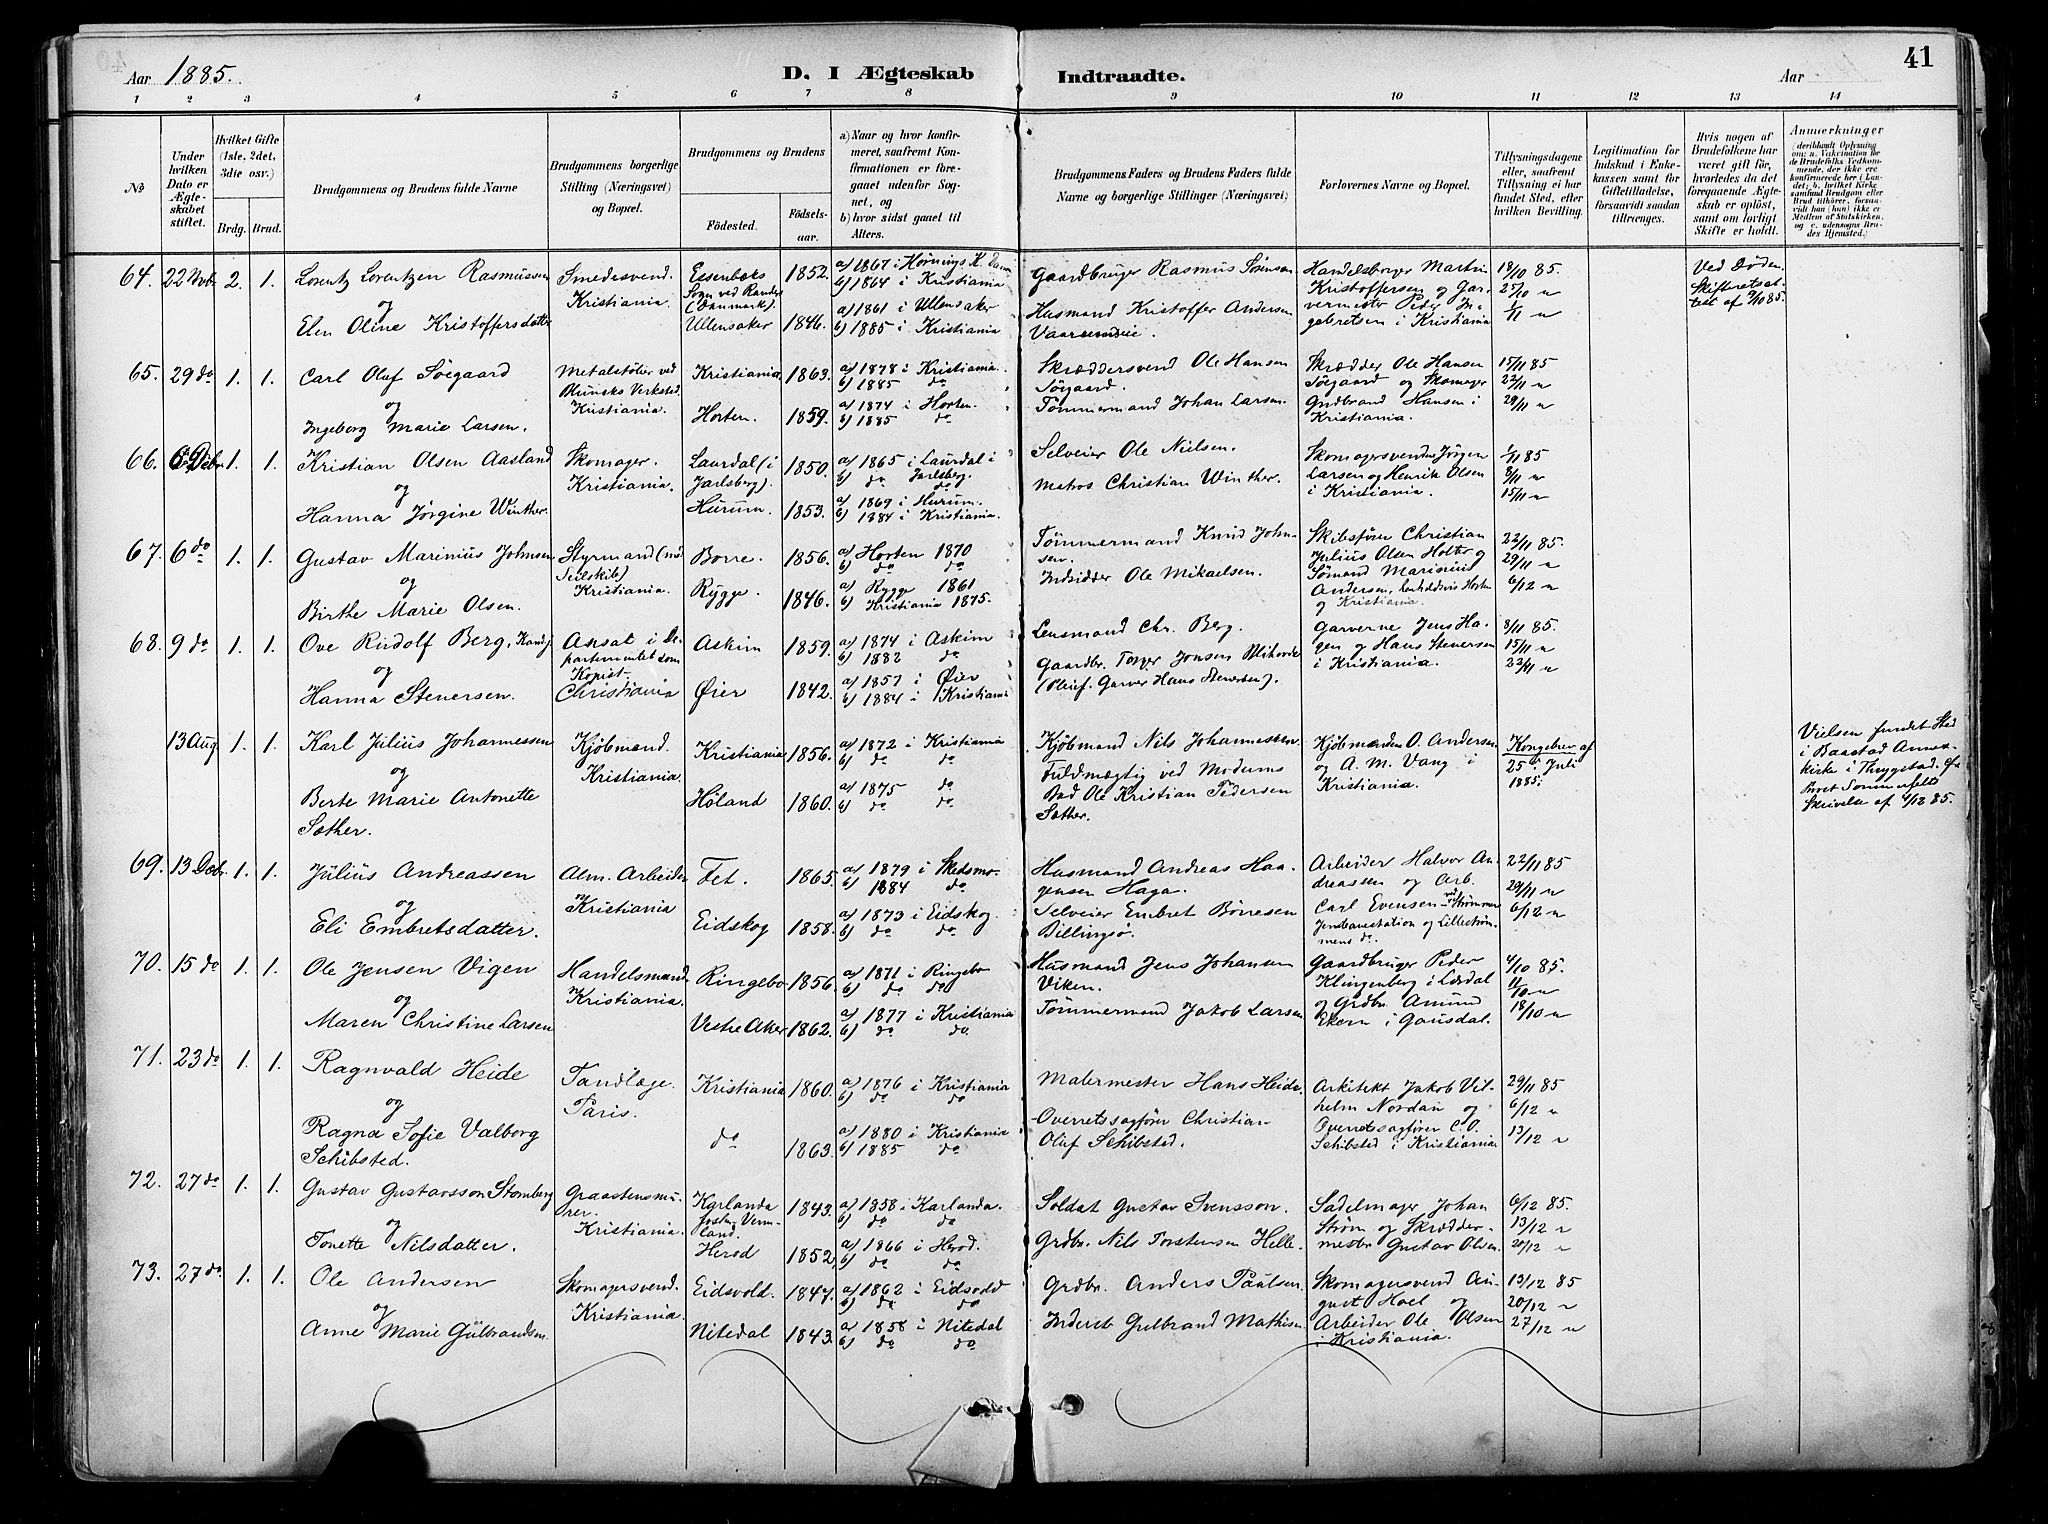 Aar 1885. D. I Ægteskab Indtraadte. Aar 41
1 2 3 4 5 6 7 8 9 10 11 12 13 14
No
Under hvilken Dato er Ægteskabet stiftet.
Hvilket Gifte (1ste, 2det, 3die osv.)
Brdg. Brud.
Brudgommens og Brudens fulde Navne
Brudgommens borgerlige Stilling (Næringsvei) og Bopæl.
Brudgommens og Brudens
Fødested. Fødselsaar.
a) Naar og hvor konfirmeret, saafremt Konfirmationen er foregaaet udenfor Sognet, og
b) hvor sidst gaaet til Alters.
Brudgommens Faders og Brudens Faders fulde Navne og borgerlige Stillinger (Næringsvei)
Forlovernes Navne og Bopæl.
Tillysningsdagene eller, saafremt Tillysning ei har fundet Sted, efter hvilken Bevilling.
Legitimation for Indskud i Enkekassen samt for Giftetilladelse, forsaavidt saadan tiltrænges.
Hvis nogen af Brudefolkene har været gift før, hvorledes da det foregaaende Ægteskab er opløst, samt om lovligt Skifte er holdt.
Anmerkninger
64. 22 Nvbr 2. 1. Lorentz Lorentzen Rasmussen
og
Elen Oline Kristoffersdatter
Smedesvend.
Kristiania.
Essenbæks
Sogn ved Randers
(Danmark).
Ullensaker
1852.
1846.
a) 1867 i Hørnings K. Danm
b) 1864 i Kristiania
a) 1861 i Ullensaker
b) 1885 i Kristiania
Gaardbruger Rasmus Sørensen
Husmand Kristoffer Andersen
Handelsborger Martin
Kristoffersen og Gar-
vermester Peder In-
gebretsen i Kristiania
18/10 85.
25/10 "
1/11 "
Ved Døden.
Skifteretsat-
test af 9/10 85.
65. 29 do 1. 1. Carl Olaf Søegaard
og
Ingeborg Marie Larsen.
Metalstøber ved
Mlunchs Verksted.
Kristiania.
Kristiania.
Horten.
1863.
1859.
a) 1878 i Kristiania.
b) 1885 do
a) 1874 i Horten.
b) 1885 do
Skræddersvend Ole Hansen
Søgaard.
Tømmermand Johan Larsen.
Skrædder Ole Hansen
Søgaard og Skomager
Gudbrand Hansen i
Kristiania.
15/11 85
22/11 "
29/11 "
66. 6 Debr 1. 1. Kristian Olsen Aasland
og
Hanna Jørgine Winther.
Skomager.
Kristiania.
Laurdal (i
Jarlsberg).
Hurum.
1850.
1853.
a) 1865 i Laurdal i
b) do Jarlsberg.
a) 1869 i Hurum.
b) 1884 i Kristiania.
Selveier Ole Nielsen.
Matros Christian Winther.
Skomagersvendene Jørgen
Larsen og Henrik Olsen
i Kristiania.
1/11 85
8/11 "
15/11 "
67. 6 do 1. 1. Gustav Marinius Johnsen
og
Birthe Marie Olsen.
Styrmand (med
Seilskib)
Kristiania.
Borre.
Rygge.
1856.
1846.
a) Horten 1870
b) do do
a) Rygge 1861
b) Kristiania 1875.
Tømmermand Knud John-
sen.
Indsidder Ole Mikaelsen.
Skibsfører Christian
Julius Olsen Holter og
Sømand Marinius
Andersen, henholdsvis Horten
og Kristiania.
22/11 85.
29/11 "
6/12 "
68. 9 do 1. 1. Ove Rudolf Berg, Kand.
og
Hanna Stenersen.
Ansat i De-
partementet som
Kopist.
Christiania
Askim
Øier
1859.
1842.
a) 1874 i Askim
b) 1882 do
a) 1857 i Øier
b) 1884 i Kristiania
Lensmand Chr. Berg.
Gaardbr. Torger Jonsen
(Pleief. Garver Hans Stenersen).
Garverne Jens Ha-
gen og Hans Stenersen
i Kristiania.
8/11 85.
15/11 "
22/11 "
13 Aug 1. 1. Karl Julius Johannessen
og
Berte Marie Antonette
Sæther.
Kjøbmand.
Kristiania.
Kristiania
Høland
1856.
1860.
a) 1872 i Kristiania
b) do do
a) 1875 do
b) do do
Kjøbmand Nils Johannessen.
Fuldmægtig ved Modums
Bad Ole Kristian Pedersen
Sæther.
Kjøbmænden O. Andersen
og A. M. Vang i
Kristiania.
Kongebrev af
25 Juli
1885.
Vielsen fundet Sted
i Baastad Annex-
kirke i Thrygstad.
Skrivelse af 4/12 85.
69. 13 Debr. 1. 1. Julius Andreassen
og
Eli Embretsdatter.
Alm. Arbeider
Kristiania
Fet.
Eidskog
1865.
1858.
a) 1879 i Skedsmo.
b) 1884 do
a) 1873 i Eidskog.
b) do do
Husmand Andreas Haa-
gensen Haga.
Selveier Embret Børresen
Billingsø.
Arbeider Halvor An-
dreassen og Arb.
Carl Evensen ved Strømmen
Jernbanestation og Lillestrøm-
mens do.
22/11 85
29/11 "
6/12 "
70. 15 do 1. 1. Ole Jensen Vigen
og
Maren Christine Larsen
Handelsmand
Kristiania.
Ringebo
Vestre Aker
1856.
1862.
a) 1871 i Ringebo
b) do do
a) 1877 i Kristiania
b) do do.
Husmand Jens Johansen
Viken.
Tømmermand Jakob Larsen
Gaardbruger Peder
Klingenberg i Lærdal
og Grdbr. Amund
Ekern i Gausdal.
4/10 85.
11/10 "
18/10 "
71. 23 do 1. 1. Ragnvald Heide
og
Ragna Sofie Valborg
Schibsted.
Tandlæge.
Paris.
Kristiania
do
1860.
1863.
a) 1876 i Kristiania
b) do do
a) 1880 i Kristiania
b) 1885 do
Malermester Hans Heide
Overretssagfører Christian
Oluf Schibsted.
Arkitekt Jakob Vil-
helm Nordan og
Overretssagfører C. O.
Schibsted i Kristiania
29/11 85
6/12 "
13/12 "
72. 27 do 1. 1. Gustav Gustavsson Stomberg
og
Tonette Nilsdatter.
Graastensmu-
rer.
Kristiania.
Karlanda
Verm-
land.
Herod
1843.
1852.
a) 1858 i Karlanda.
b) do do
a) 1866 i Herod.
b) do do
Soldat Gustav Svensson.
Grdbr. Nils Torstensen Helle.
Sadelmager Johan
Strøm og Skrædder-
mester Gustav Olsen
6/12 85.
13/12 "
20/12 "
73. 27 do 1. 1. Ole Andersen
og
Anne Marie Gulbrandsen
Skomagersvend.
Kristiania.
Eidsvold.
Nitedal
1847.
1843.
a) 1862 i Eidsvold
b) do do
a) 1858 i Nitedal
b) do do
Grdbr. Anders Paulsen
Inderst Gulbrand Mathisen
Skomagersvend Au-
gust Hoel og
Arbeider Ole Olsen
i Kristiania.
13/12 85
20/12 "
27/12 "